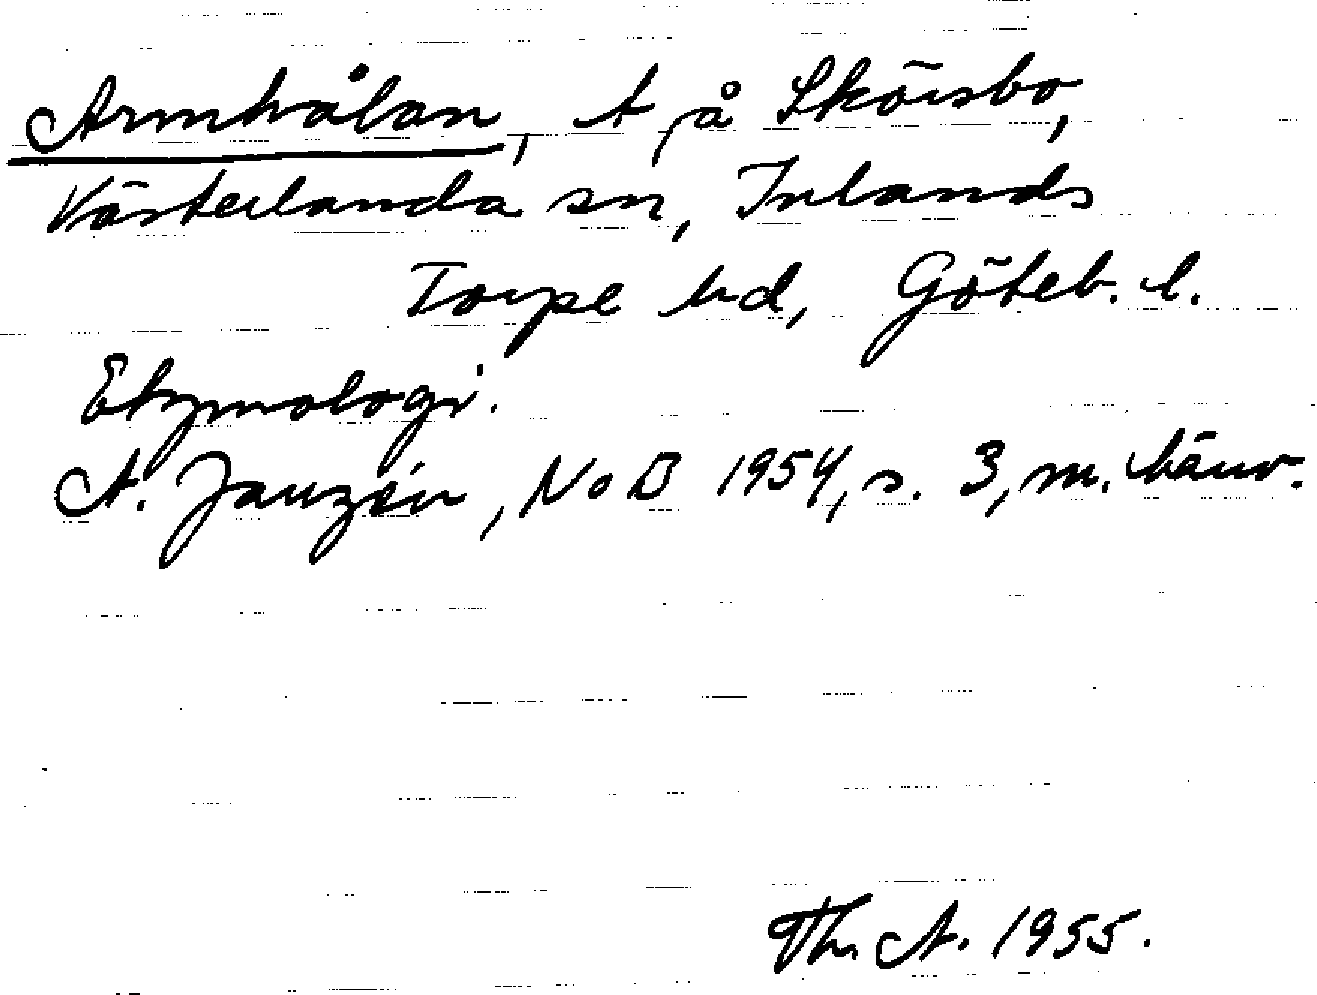 Armhålan, t på Skörsbo,
Västerlanda sn, Inlands
Torpe hd, Göteb. l.
Etymologi.
A. Janzén, NoB 1954, s. 3, m. hänv.
Th A. 1955.